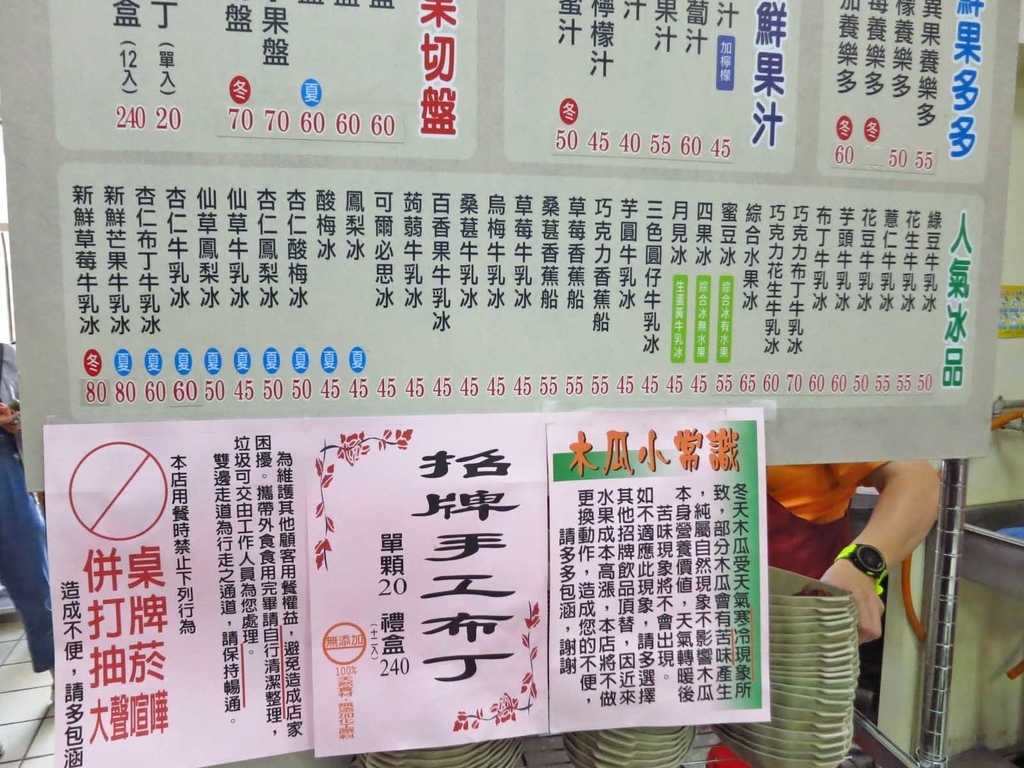 鮮果多多
異果養樂多 55
檬養樂多 50
莓養樂多 冬
加養樂多 冬 60
鮮果汁
汁 加檸檬 45
蔔汁 60
果汁 55
汁 40
檸檬汁 45
蜜汁 冬 50
果切盤
盤 60
盤 60
盤 夏 60
水果盤 70
盤 冬 70
丁(單入) 20
盒(12入) 240
人氣冰品
綠豆牛乳冰 50
花生牛乳冰 55
薏仁牛乳冰 55
花豆牛乳冰 50
芋頭牛乳冰 60
布丁牛乳冰 60
巧克力布丁牛乳冰 70
巧克力花生牛乳冰 60
綜合水果冰 65
蜜豆冰 綜合冰有水果 55
四果冰 綜合冰無水果 45
月見冰 生蛋黃牛乳冰 45
三色圓仔牛乳冰 45
芋圓牛乳冰 45
巧克力香蕉船 55
草莓香蕉船 55
桑葚香蕉船 55
草莓牛乳冰 45
烏梅牛乳冰 45
桑葚牛乳冰 45
百香果牛乳冰 45
蒟蒻牛乳冰 45
可爾必思冰 45
鳳梨冰 夏 45
酸梅冰 夏 45
杏仁酸梅冰 夏 50
杏仁鳳梨冰 夏 50
仙草牛乳冰 夏 45
仙草鳳梨冰 夏 50
杏仁牛乳冰 夏 60
杏仁布丁牛乳冰 夏 60
新鮮芒果牛乳冰 夏 80
新鮮草莓牛乳冰 冬 80
木瓜小常識
冬天木瓜受天氣寒冷現象所
致，部分木瓜會有苦味產生
，純屬自然現象不影響木瓜
本身營養價值，天氣轉暖後
苦味現象將不會出現。
如不適應此現象，請多選擇
其他招牌飲品頂替，因近來
水果成本高漲，本店將不做
更換動作，造成您的不便，
請多多包涵，謝謝
招牌手工布丁
單顆20 禮盒(十二入)240
無添加
100%
為維護其他顧客用餐權益，避免造成店家
困擾。攜帶外食食用完畢請自行清潔整理，
垃圾可交由工作人員為您處理。
雙邊走道為行走之通道，請保持暢通。
本店用餐時禁止下列行為
桌牌菸
併打抽
大聲喧嘩
造成不便，請多包涵